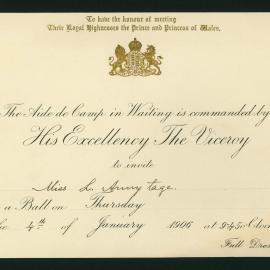 To have the honour of meeting
Their Royal Highnesses the Prince and Princess of Wales.
The Aide de Camp in Waiting is commanded by
His Excellency The Viceroy
to invite
Miss L. Army tage.
a Ball on Thursday
4th of January 1906 at 9.45 o'Cloc
Full Dres